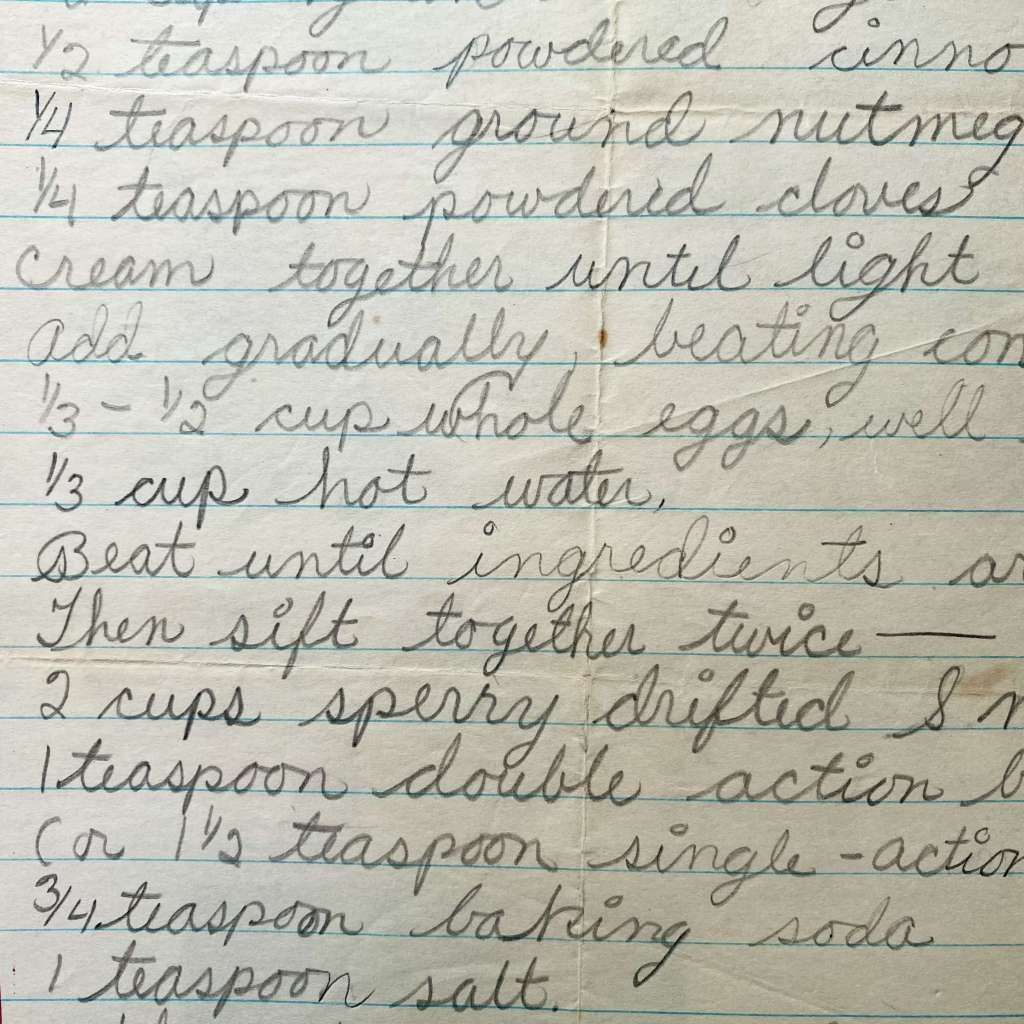 1/2 teaspoon powdered cinno
1/4 teaspoon ground nutmeg
1/4 teaspoon powdered cloves
Cream together until light
Add gradually, beating con
1/3 - 1/2 cup whole eggs, well
1/3 cup hot water.
Beat until ingredients ar
Then sift together twice —
2 cups sperry drifted S
1 teaspoon double action b
(or 1 1/2 teaspoon single-action
3/4 teaspoon baking soda
1 teaspoon salt.